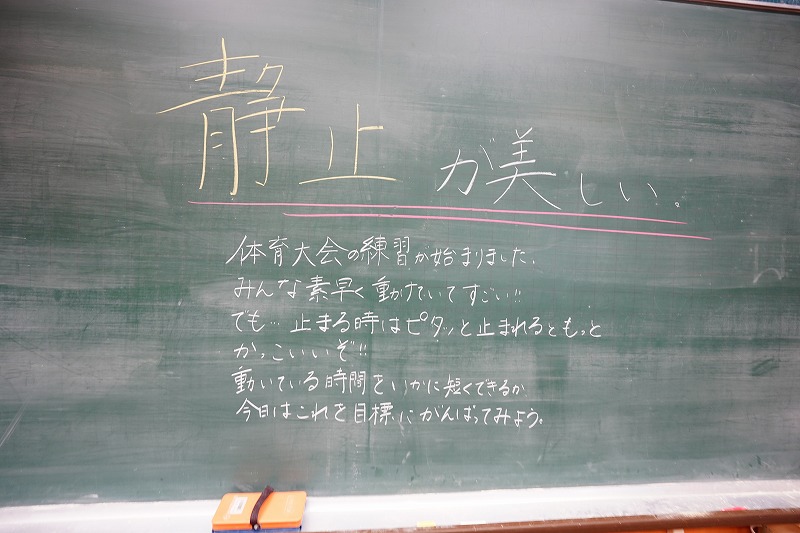 静止が美しい。
体育大会の練習が始まりました。
みんな素早く動けていてすごい!!
でも…止まる時はピタッと止まれるともっと
かっこいいぞ!!
動いている時間をいかに短くできるか
今日はこれを目標にがんばってみよう。